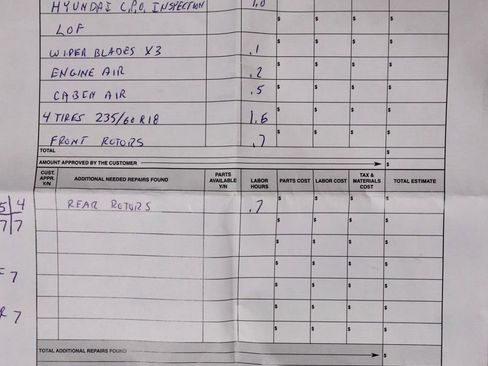 HYUNDAI C.P.O. INSPECTION 1.0
$ $ $ $
LOF
$ $ $ $
WIPER BLADES X3 .1
$ $ $ $
ENGINE AIR .2
$ $ $ $
CABEN AIR .5
$ $ $ $
4 TIRES 235/60R18 1.6
$ $ $ $
FRONT ROTORS .7
$ $ $ $
TOTAL $
AMOUNT APPROVED BY THE CUSTOMER $
CUST. APPR. Y/N ADDITIONAL NEEDED REPAIRS FOUND PARTS AVAILABLE Y/N LABOR HOURS PARTS COST LABOR COST TAX & MATERIALS COST TOTAL ESTIMATE
5 4 REAR ROTORS .7 $ $ $ $
7 7
$ $ $ $
$ $ $ $
F 7
$ $ $ $
R 7
$ $ $ $
$ $ $ $
$ $ $ $
TOTAL ADDITIONAL REPAIRS FOUND $